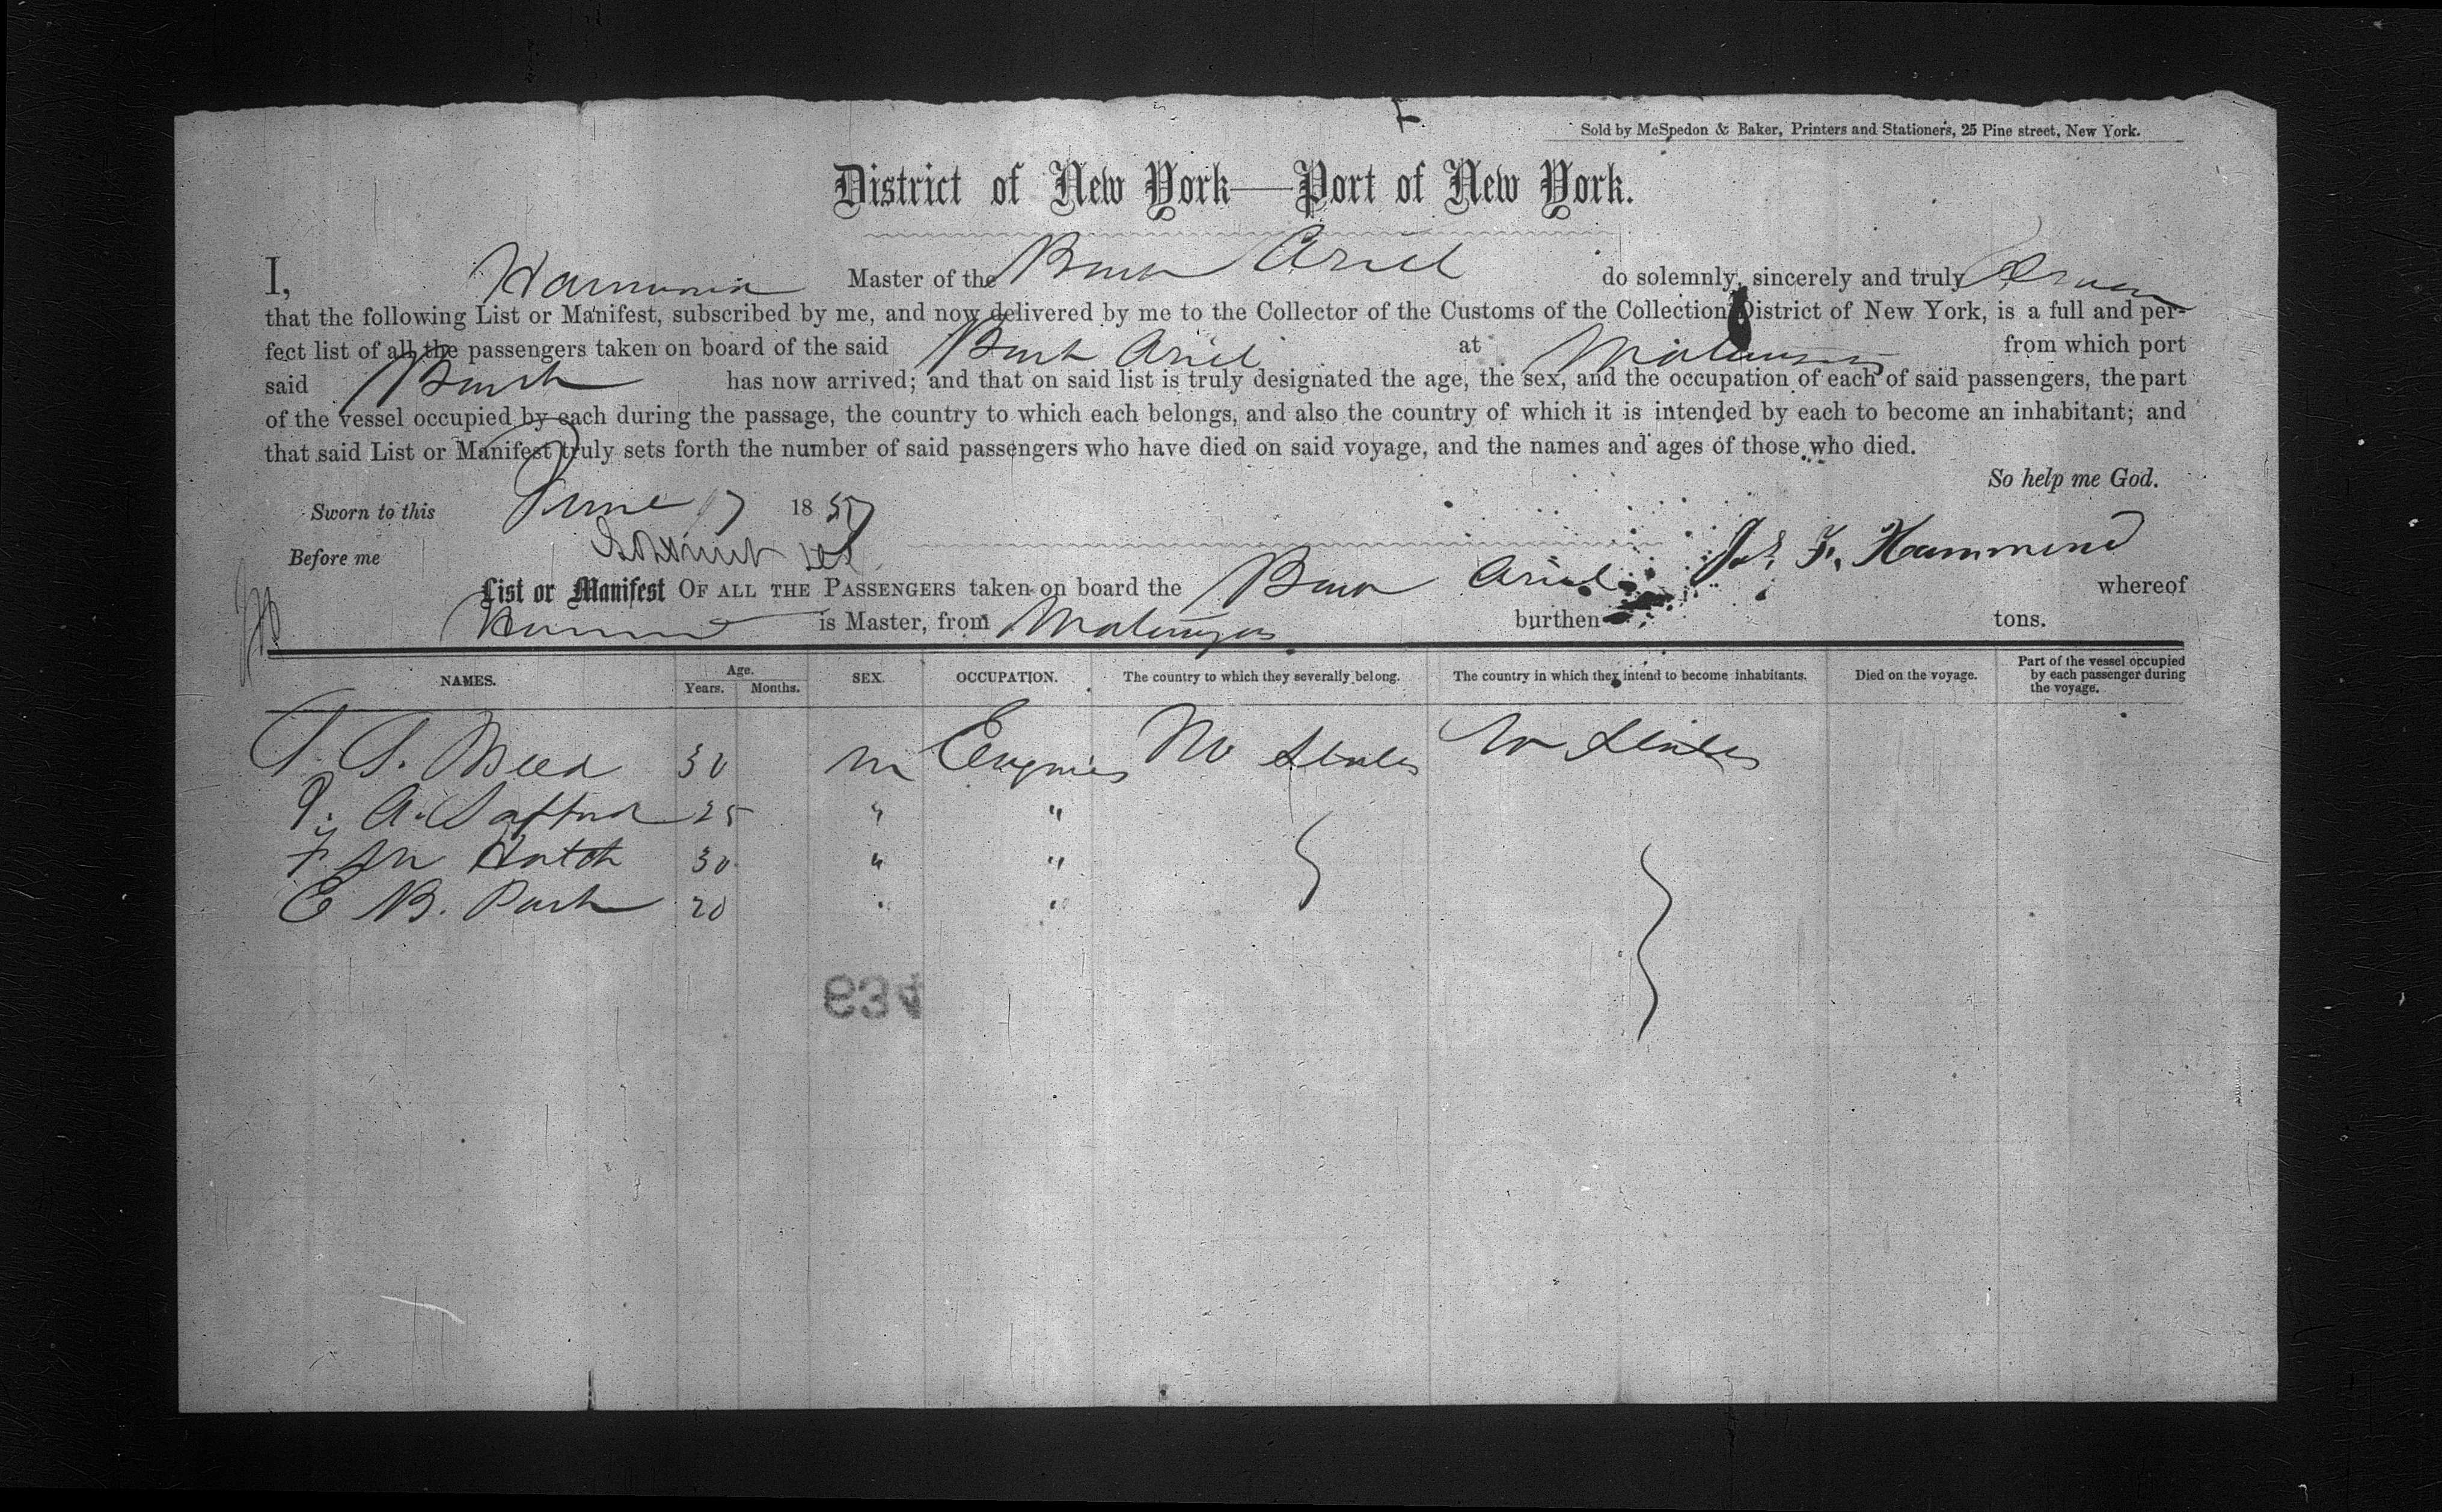 Sold by McSpedon & Baker, Printers and Stationers, 25 Pine street, New York.
District of New York—Port of New York.
I, Hammond Master of the Bark Ariel do solemnly, sincerely and truly Swear
that the following List or Manifest, subscribed by me, and now delivered by me to the Collector of the Customs of the Collection District of New York, is a full and per-
fect list of all the passengers taken on board of the said Bark Ariel at Matanzas from which port
said Bark has now arrived; and that on said list is truly designated the age, the sex, and the occupation of each of said passengers, the part
of the vessel occupied by each during the passage, the country to which each belongs, and also the country of which it is intended by each to become an inhabitant; and
that said List or Manifest truly sets forth the number of said passengers who have died on said voyage, and the names and ages of those who died.
So help me God.
Sworn to this June 17 1857
Before me F. Hammond
List or Manifest OF ALL THE PASSENGERS taken on board the Bark Ariel whereof
Hammond is Master, from Matanzas burthen tons.
NAMES. Age. Years. Months. SEX. OCCUPATION. The country to which they severally belong. The country in which they intend to become inhabitants. Died on the voyage. Part of the vessel occupied by each passenger during the voyage.
S. 30 m States States
A. Safford 25 " "
F. M Hatch 30 " "
E B. Park 20 " "
634